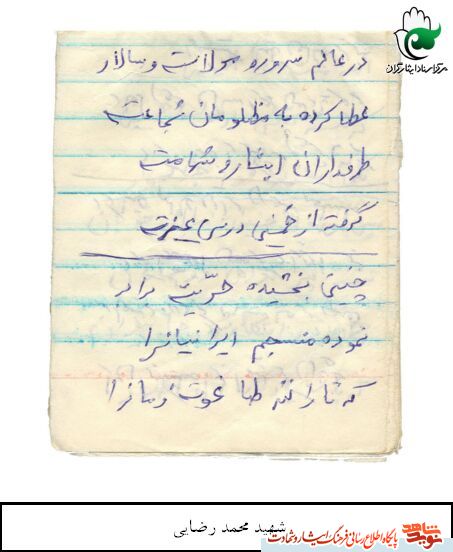 مرکز اسناد ایثارگران
در عالم سرور و مولاست و سالار
عطا کرده به مظلومان شجاعت
طرفداران ایثار و شهامت
گرفته از خمینی درس
چنین بخشیده حریّت برادر
نموده منسجم ایرانیانرا
که تا رانند طاغوت زمانرا
شهید محمد رضایی
نوید شاهد پایگاه اطلاع رسانی فرهنگ ایثار و شهادت